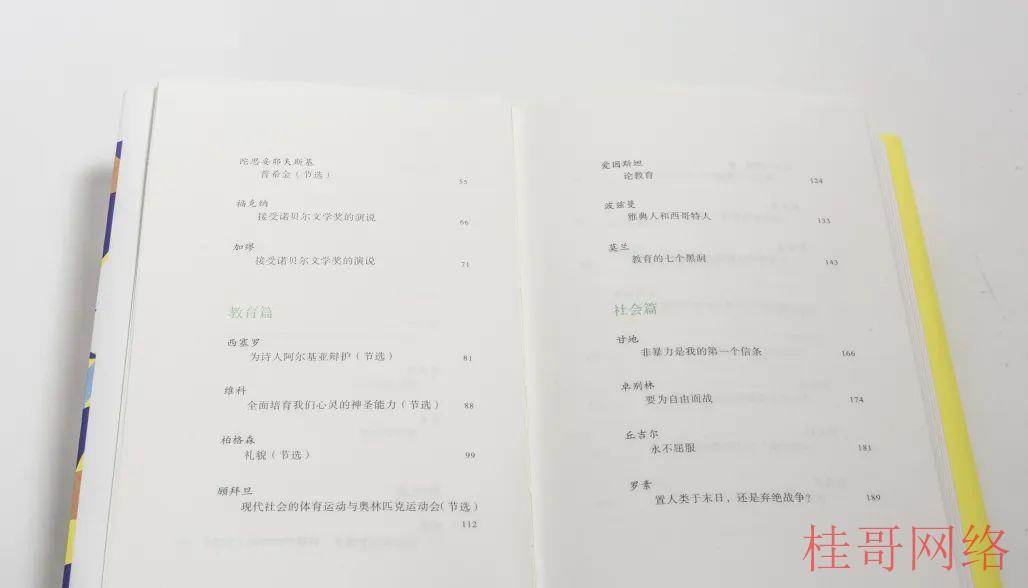 陀思妥耶夫斯基
普希金（节选）
55
福克纳
接受诺贝尔文学奖的演说
66
加缪
接受诺贝尔文学奖的演说
71
教育篇
西塞罗
为诗人阿尔基亚辩护（节选）
81
维科
全面培育我们心灵的神圣能力（节选）
88
柏格森
礼貌（节选）
99
顾拜旦
现代社会的体育运动与奥林匹克运动会（节选）
112
爱因斯坦
论教育
124
波兹曼
雅典人和西哥特人
133
莫兰
教育的七个黑洞
143
社会篇
甘地
非暴力是我的第一个信条
166
卓别林
要为自由而战
174
丘吉尔
永不屈服
181
罗素
置人类于末日，还是弃绝战争？
189
桂哥网络